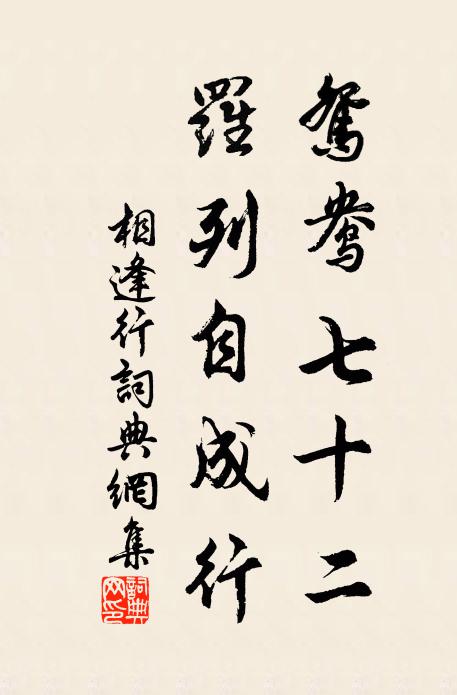 鴛鴦七十二
羅列自成行
相逢行詞典網集
詞典網印